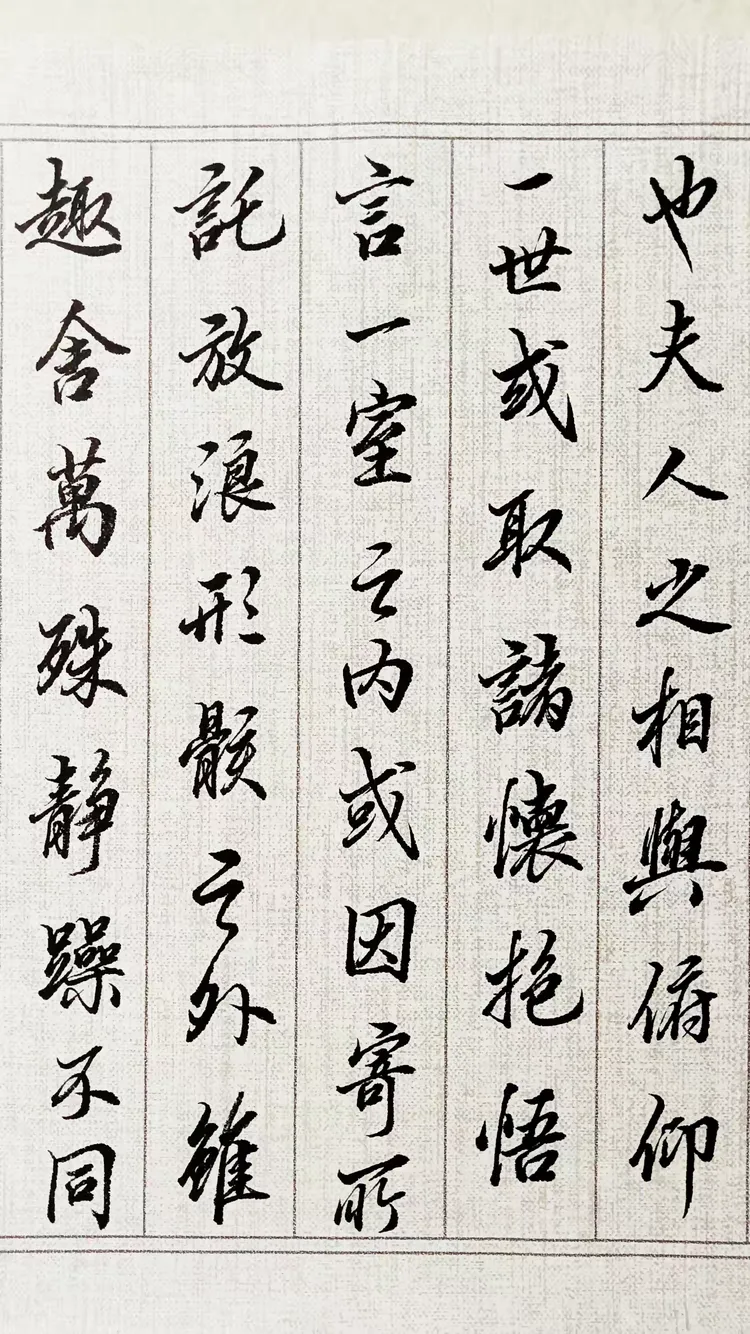 也夫人之相與俯仰
一世或取諸懷抱悟
言一室之内或因寄所
託放浪形骸之外雖
趣舍萬殊静躁不同